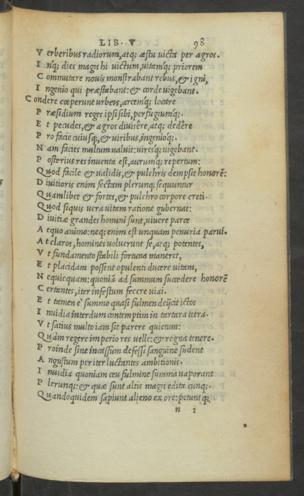 LIB. V 98
V erberibus radiorum, atq; æstu uicta per agros.
I nq; dies magis hi uictum, uitamq; priorem
C ommutare nouis monstrabant rebus, & igni,
I ngenio qui præstabant: & corde uigebant.
C ondere cœperunt urbeis, arcemq; locare
P ræsidium reges ipsi sibi, perfugiumq;.
E t pecudes, & agros diuisere, atq; dedêre
P ro facie cuiusq; & uiribus, ingenioq;.
N am facies multum ualuit: uiresq; uigebant.
P osterius res inuenta est, aurumq; repertum:
Q uod facile & ualidis, & pulchris dempsit honorẽ
D iuitioris enim sectam plerunq; sequuntur
Q uamlibet & fortes, & pulchro corpore creti.
Q uod siquis uera uitam ratione gubernet:
D iuitiæ grandes homini sunt, uiuere parce
A equo animo: neq; enim est unquam penuria parui.
A t claros, homines uoluerunt se, atq; potentes,
V t fundamento stabili fortuna maneret,
E t placidam possent opulenti ducere uitam,
N equicquam: quoniã ad summum succedere honorẽ
C ertantes, iter infestum fecere uiai.
E t tamen è summo quasi fulmen deiicit ictos
I nuidia interdum contemptim in tartara tetra.
V t satius multo iam sit parere quietum:
Q uàm regere imperio res uelle: & regna tenere.
P roinde sine incassum defessi sanguine sudent
A ngustum per iter luctantes ambitionis.
I nuidia quoniam ceu fulmine summa uaporant
P lerunq; & quæ sunt aliis magis edita cunq;.
Q uandoquidem sapiunt alieno ex ore: petuntq;
n 2